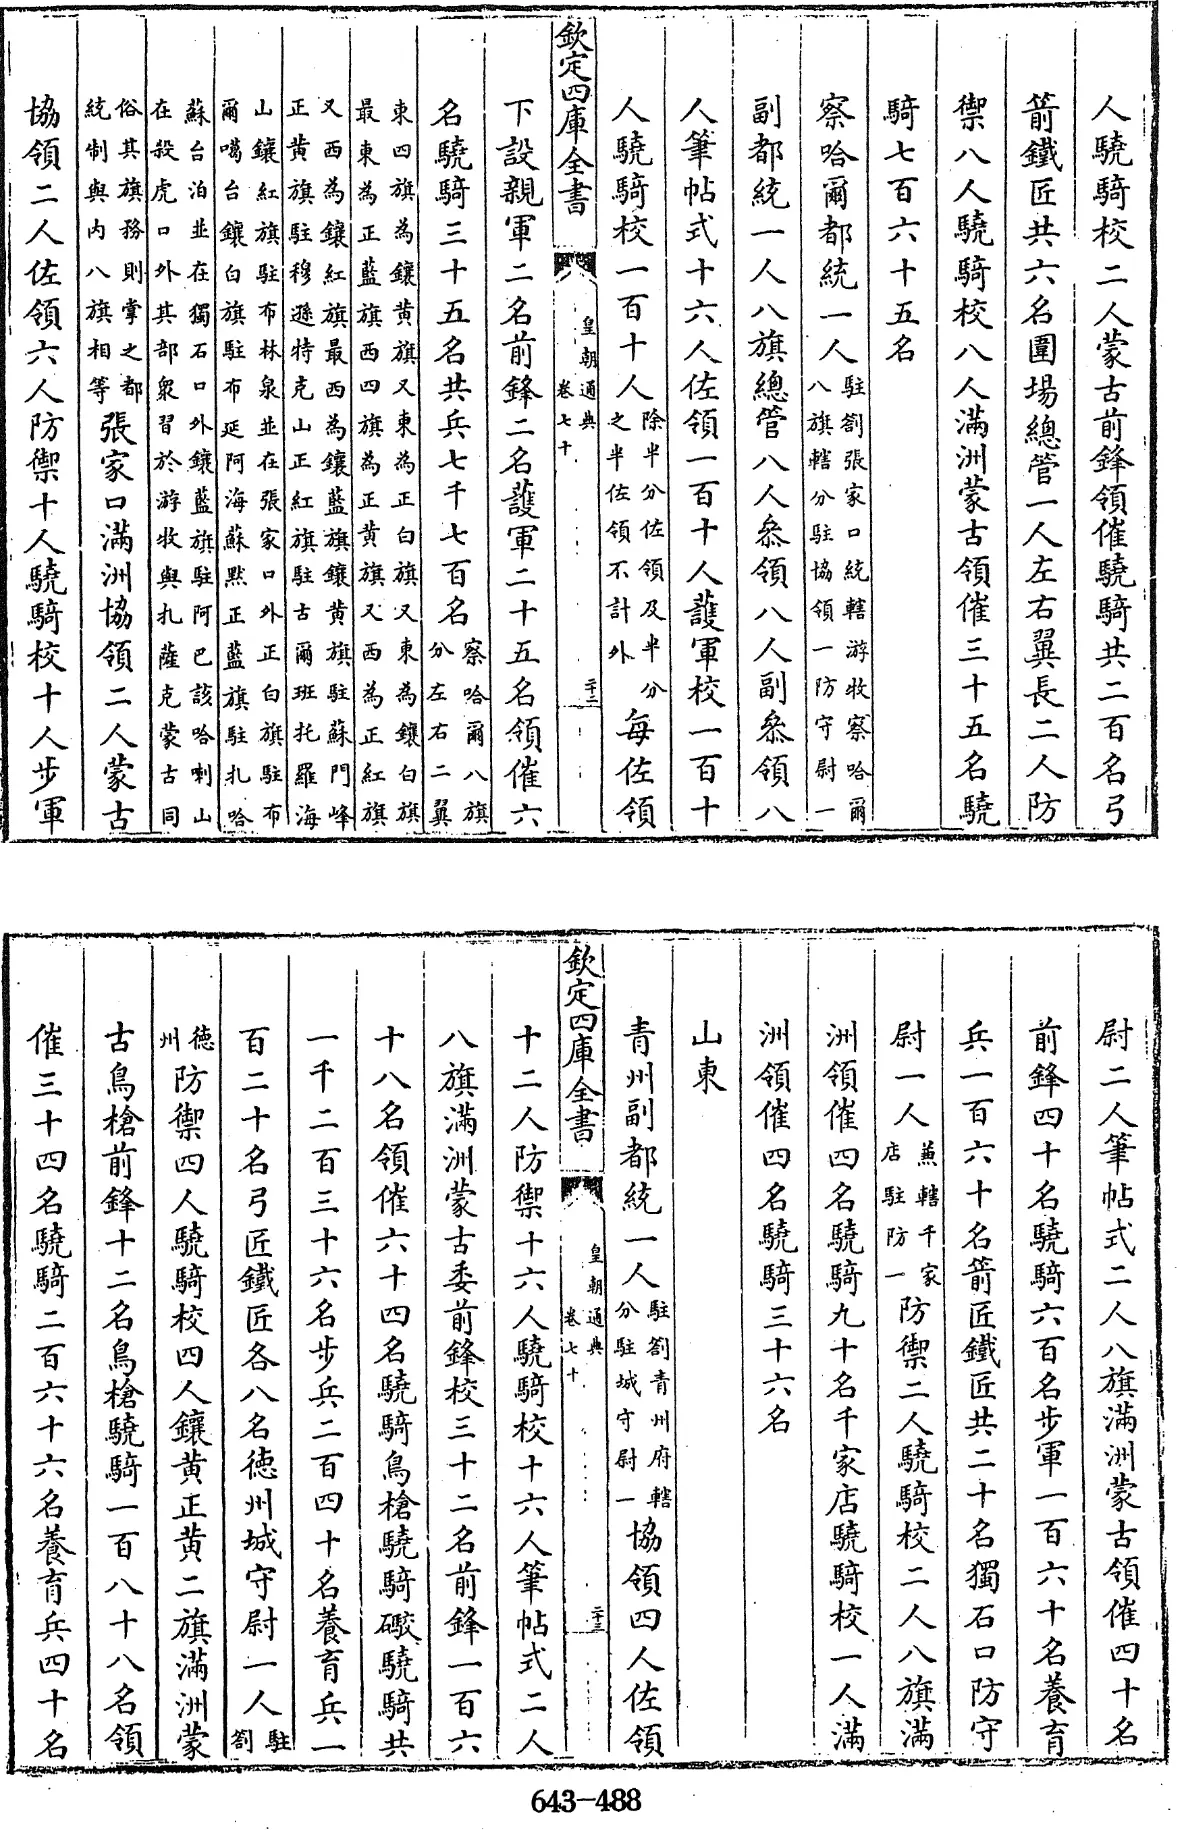 人驍騎校二人蒙古前鋒領催驍騎共二百名弓
箭鐵匠共六名圍場總管一人左右翼長二人防
禦八人驍騎校八人滿洲蒙古領催三十五名驍
騎七百六十五名
察哈爾都統一人駐劄張家口統轄游牧察哈爾八旗轄分駐協領一防守尉一
副都統一人八旗總管八人叅領八人副叅領八
人筆帖式十六人佐領一百十人護軍校一百十
人驍騎校一百十人除半分佐領及半分之半佐領不計外每佐領
欽定四庫全書
皇朝通典
卷七十
二十二
下設親軍二名前鋒二名護軍二十五名領催六
名驍騎三十五名共兵七千七百名察哈爾八旗分左右二翼
東四旗為鑲黃旗又東為正白旗又東為鑲白旗
最東為正藍旗西四旗為正黃旗又西為正紅旗
又西為鑲紅旗最西為鑲藍旗鑲黃旗駐蘇門峰
正黃旗駐穆遜特克山正紅旗駐古爾班托羅海
山鑲紅旗駐布林泉並在張家口外正白旗駐布
爾噶台鑲白旗駐布延阿海蘇黙正藍旗駐扎哈
蘇台泊並在獨石口外鑲藍旗駐阿巴該哈喇山
在殺虎口外其部衆習於游牧與扎薩克蒙古同
俗其旗務則掌之都統制與內八旗相等張家口滿洲協領二人蒙古
協領二人佐領六人防禦十人驍騎校十人步軍
尉二人筆帖式二人八旗滿洲蒙古領催四十名
前鋒四十名驍騎六百名步軍一百六十名養育
兵一百六十名箭匠鐵匠共二十名獨石口防守
尉一人兼轄千家店駐防一防禦二人驍騎校二人八旗滿
洲領催四名驍騎九十名千家店驍騎校一人滿
洲領催四名驍騎三十六名
山東
青州副都統一人駐劄青州府轄分駐城守尉一協領四人佐領
欽定四庫全書
皇朝通典
卷七十
二十三
十二人防禦十六人驍騎校十六人筆帖式二人
八旗滿洲蒙古委前鋒校三十二名前鋒一百六
十八名領催六十四名驍騎鳥槍驍騎礮驍騎共
一千二百三十六名步兵二百四十名養育兵一
百二十名弓匠鐵匠各八名德州城守尉一人駐劄
德州防禦四人驍騎校四人鑲黃正黃二旗滿洲蒙
古鳥槍前鋒十二名鳥槍驍騎一百八十八名領
催三十四名驍騎二百六十六名養育兵四十名
643-488